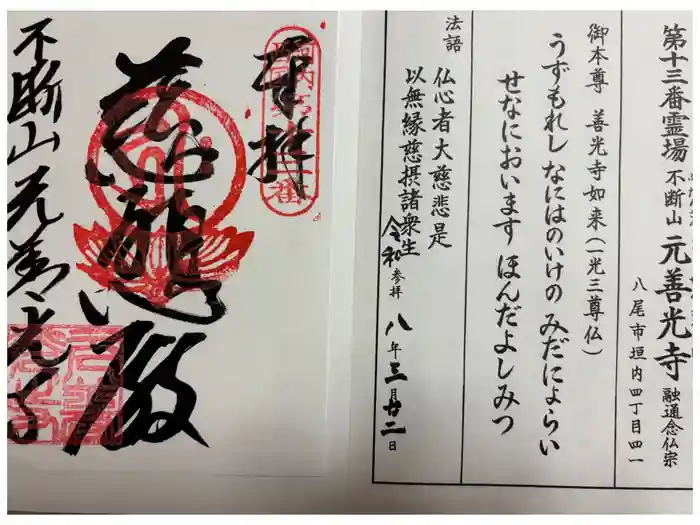 第十三番霊場 不断山 元善光寺 融通念仏宗
八尾市垣内四丁目四一
御本尊 善光寺如来(一光三尊仏)
うずもれし なにはのいけの みだによらい
せなにおいます ほんだよしみつ
法語
仏心者大慈悲是
以無縁慈摂諸衆生
令和 参拝 八年三月廿二日
奉拝
不断山元善光寺